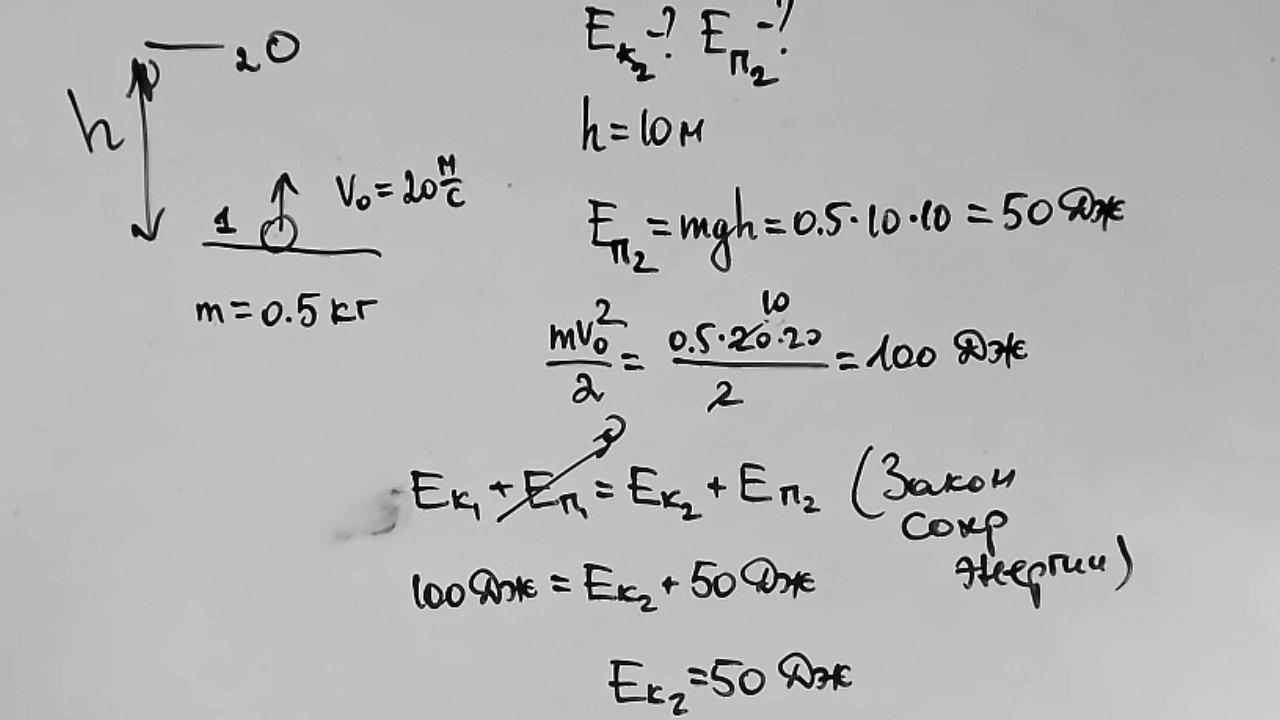 2
h
1 V₀ = 20 м/с
m = 0.5 кг
Eк₂ -? Eп₂ -?
h = 10 м
Eп₂ = mgh = 0.5 · 10 · 10 = 50 Дж
mv₀²/2 = 0.5 · 20 · 20/2 = 100 Дж
10
0
Eк₁ + Eп₁ = Eк₂ + Eп₂ (Закон
сохр
энергии)
100 Дж = Eк₂ + 50 Дж
Eк₂ = 50 Дж